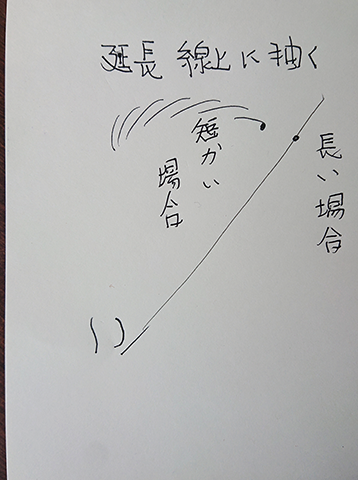 延長線上に抽く
短かい
場合
長い場合